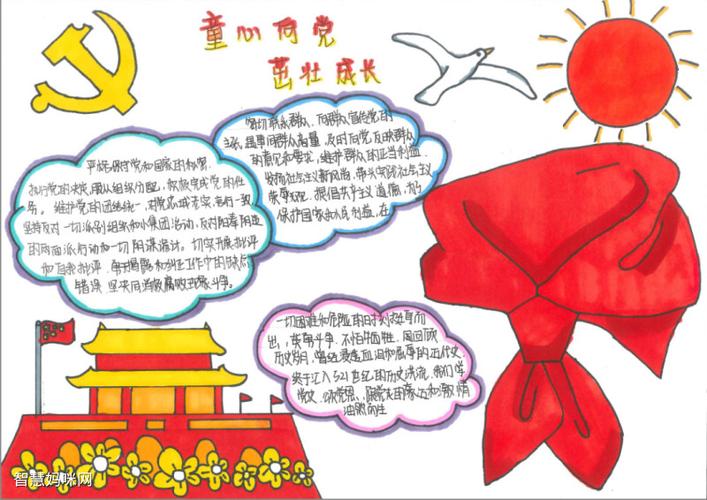 童心向党
茁壮成长
密切联系群众，向群众宣传党的
主张，遇事同群众商量，及时向党反映群众
的意见和要求，维护群众的正当利益
发扬社会主义新风尚，带头实践社会主义
荣辱观，提倡共产主义道德，为
保护国家和人民利益，在
严格保守党和国家的秘密，
执行党的决定，服从组织分配，积极完成党的任
务。维护党的团结统一，对党忠诚老实，言行一致
坚持反对一切派别组织和小集团活动，反对阳奉阴违
的两面派行动和一切阴谋诡计。切实开展批评
和自我批评，勇于揭露和纠正工作中的缺点
错误，坚决同消极腐败现象斗争。
一切困难和危险的时刻挺身而
出，英勇斗争，不怕牺牲。回顾
历史岁月，曾经浸透血泪和屈辱的近代史，
终于汇入21世纪的历史洪流，我们学
党史，颂党恩，跟党走的豪迈和激情
油然而生
智慧妈咪网